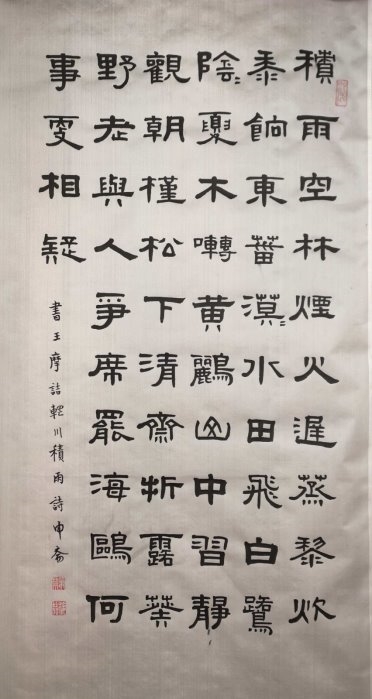 積雨空林煙火遲蒸黎炊
黍餉東菑漠〻水田飛白鷺
陰〻夏木囀黄鸝山中習靜
觀朝槿松下清齋折露葵
野老與人爭席罷海鷗何
事更相疑
書王摩詰輞川積雨詩申齋